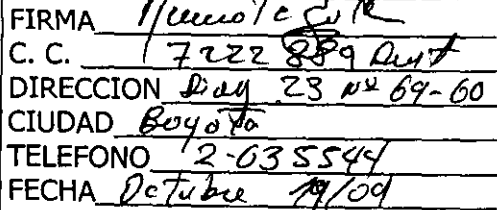 FIRMA
C. C. 7222 889 Duit
DIRECCION Diag 23 Nº 69-60
CIUDAD Bogota
TELEFONO 2-635544
FECHA Octubre 19/09